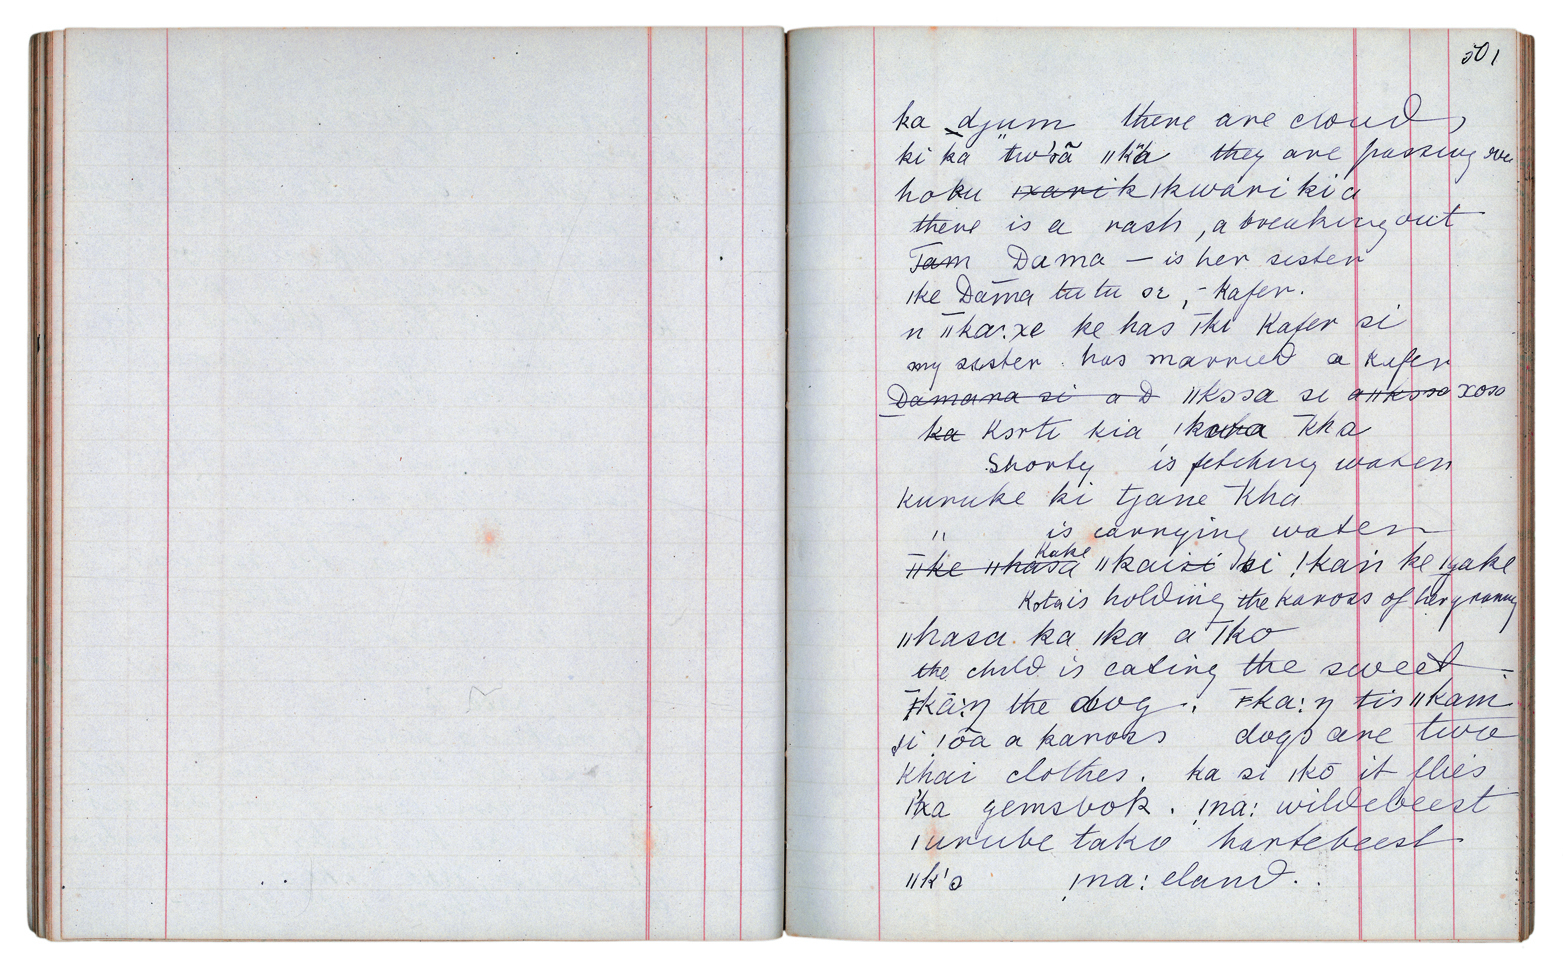 501
ka djum there are cloud,
ki ka "tw'ɔã ǁk'a they are passing
hoku ǀkwari kia
there is a rash, a breaking out
Tam Dama — is her sister
ǀke Dama tutu si, - Kafer.
n ǁka:xe ke has ǀki Kafer si
my sister has married a Kafer
Damara si a D ǁkɔɔa si
ka Kɔrti kia Kha
Shorty is fetching water
Kuruke ki tjane Kha
" is carrying water
Kake
ǁke ǁhasa ǁkaisi si !kain ke
Kota is holding the kaross of her granny
ǁhasa ka ǀka a ǀko
the child is eating the sweet
ǂkã:ŋ the dog : ǂka:ŋ tis ǁkam
si !õa a kaross dogs are two
Khai clothes. ka si ǀkō it flies
gemsbok. !na: wildebeest
ǀurube tako hartebeest
ǁk'ɔ !na: eland..